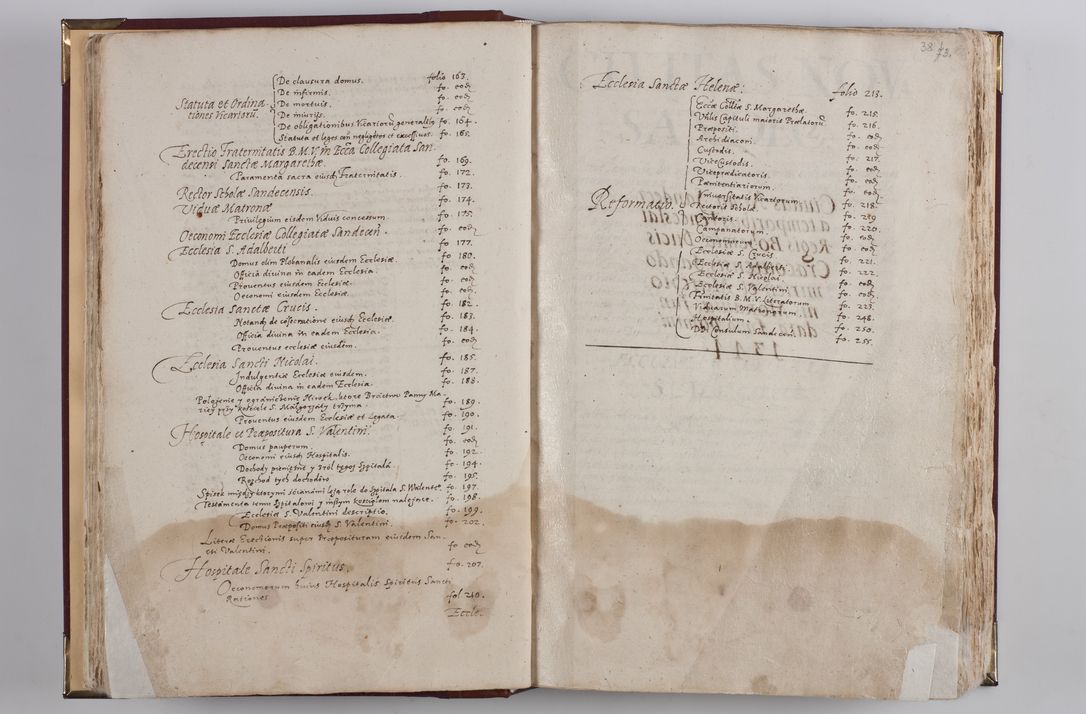 De clausura domus. folio 163.
De infirmis. fo. eod.
Statuta et Ordina- De mortuis. fo. eod.
tiones Vicarioru. De iniurijs. fo. eod.
De obligationibus Vicarioru generalig fo. 164.
Statuta et leges con negligetes et excessiuos. fo. 165.
Erectio Fraternitatis B.M.V. in Ecca Collegiata San-
decensi Sanctæ Margarethæ. fo. 169.
Paramenta sacra eiusd Fraternitatis. fo. 172.
Rector Scholæ Sandecensis. fo. 173.
Viduæ Matronæ fo. 174.
Priuilegium eisdem Viduis concessum. fo. 175.
Oeconomi Ecclesiæ Collegiatæ Sandecen fo. eod.
Ecclesia S. Adalberti fo. 177.
Domus olim Plebanalis eiusdem Ecclesiæ. fo. 180.
Officia diuina in eadem Ecclesia. fo. eod.
Prouentus eiusdem Ecclesiæ. fo. eod.
Oeconomi eiusdem Ecclesiæ. fo. eod.
Ecclesia Sanctæ Crucis. fo. 182.
Notand de cosecratione eiusd Ecclesiæ. fo. 183.
Officia diuina in eadem Ecclesia. fo. 184.
Prouentus ecclesiæ eiusdem. fo. eod.
Ecclesia Sancti Nicolai. fo. 185.
Indulgentiæ Ecclesiæ eiusdem. fo. 187.
Officia diuina in eadem Ecclesia. fo. 188.
Położenie y ograniczenie Niwek, ktore Bractwo Panny Ma-
riey przy kościele S. Małgorzaty trzyma. fo. 189.
Prouentus eiusdem Ecclesiæ et Legata. fo. 190.
Hospitale et Præpositura S. Valentini. fo. 191.
Domus pauperum. fo. eod.
Oeconomi eiusd Hospitalis. fo. 192.
Dochody pieniężne y z ról tegoż Szpitala. fo. 194.
Rozchod tych dochodow fo. 195.
Spisek między ktorymi ścianami leżą role do szpitala S. Walente. fo. 197.
Testamenta temu szpitalowi y inszym kościołom należące. fo. 198.
Ecclesiæ S. Valentini descriptio. fo. 199.
Domus Præpositi eiusd S. Valentini. fo. 202.
Literæ Erectionis super Præposituram eiusdem San-
cti Valentini. fo eod.
Hospitale Sancti Spiritus. fo. 207.
Oeconomorum huius Hospitalis Spiritus Sancti
Rationes. fol 240.
Eccle-
38
73.
Ecclesia Sanctæ Helenæ: folio 213.
Eccæ Collæ S. Margarethæ fo. 215.
Vtilis Capituli maioris Prælatoru. fo. 216.
Præpositi. fo. eod.
Archidiaconi. fo. eod.
Custodis. fo. 217.
Vicecustodis. fo. eod.
Vicepredicatoris. fo. eod.
Pœnitentiariorum. fo. eod.
Vniuersitatis Vicariorum fo. 218.
Reformatio. Rectoris Scholæ. fo. 219
Cantoris. fo. 220.
Campanatorum. fo. eod.
Oeconomorum. fo. eod.
Ecclesiæ S. Crucis fo. 221.
Ecclesiæ S. Adalberti fo. 222.
Ecclesiæ S. Nicolai. fo. eod.
Ecclesiæ S. Valentini. fo. eod.
Frnitatis B.M.V. Literatorum fo. 223.
Viduarum Matronarum. fo. 248.
Hospitalium. fo. 250.
Do. Consulum Sandecen. fo. 255.